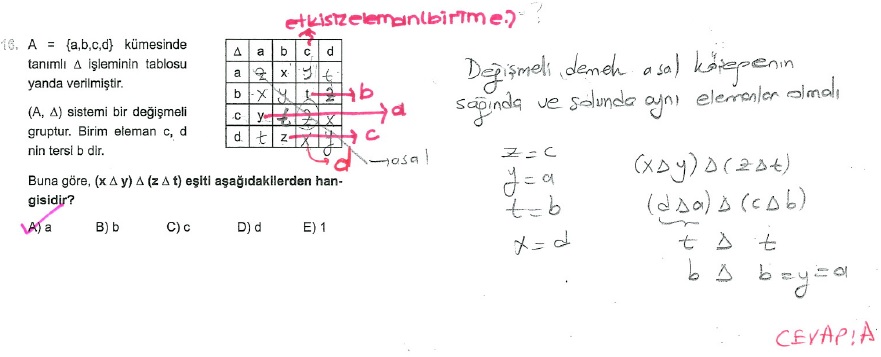 etkisizeleman(birim e.)
?
16. A = {a,b,c,d} kümesinde
tanımlı Δ işleminin tablosu
yanda verilmiştir.
(A, Δ) sistemi bir değişmeli
gruptur. Birim eleman c, d
nin tersi b dir.
Buna göre, (x Δ y) Δ (z Δ t) eşiti aşağıdakilerden han-
gisidir?
A) a B) b C) c D) d E) 1
Δ a b c d
a z x y t
b x y t z → b
c y t z x → a
d t z x y → c
d
→ asal
Değişmeli demek asal köşegenin
sağında ve solunda aynı elemanlar olmalı
z = c
y = a
t = b
x = d
(xΔy) Δ (zΔt)
(dΔa) Δ (cΔb)
t Δ t
b Δ b = y = a
CEVAP: A